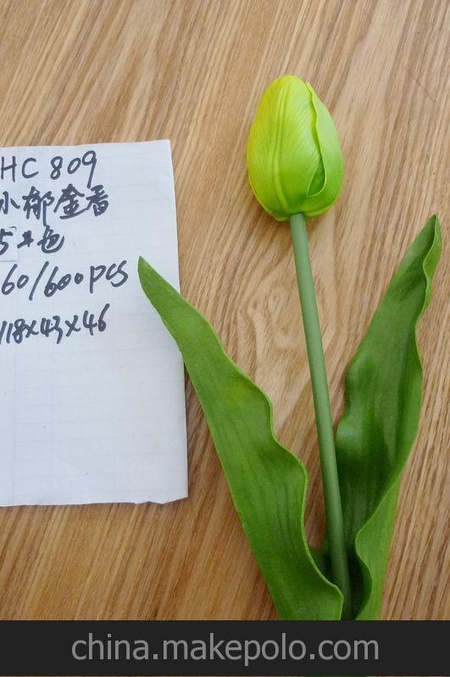 HC 809
小郁金香
5个色
60/600pcs
118×43×46
china.makepolo.com